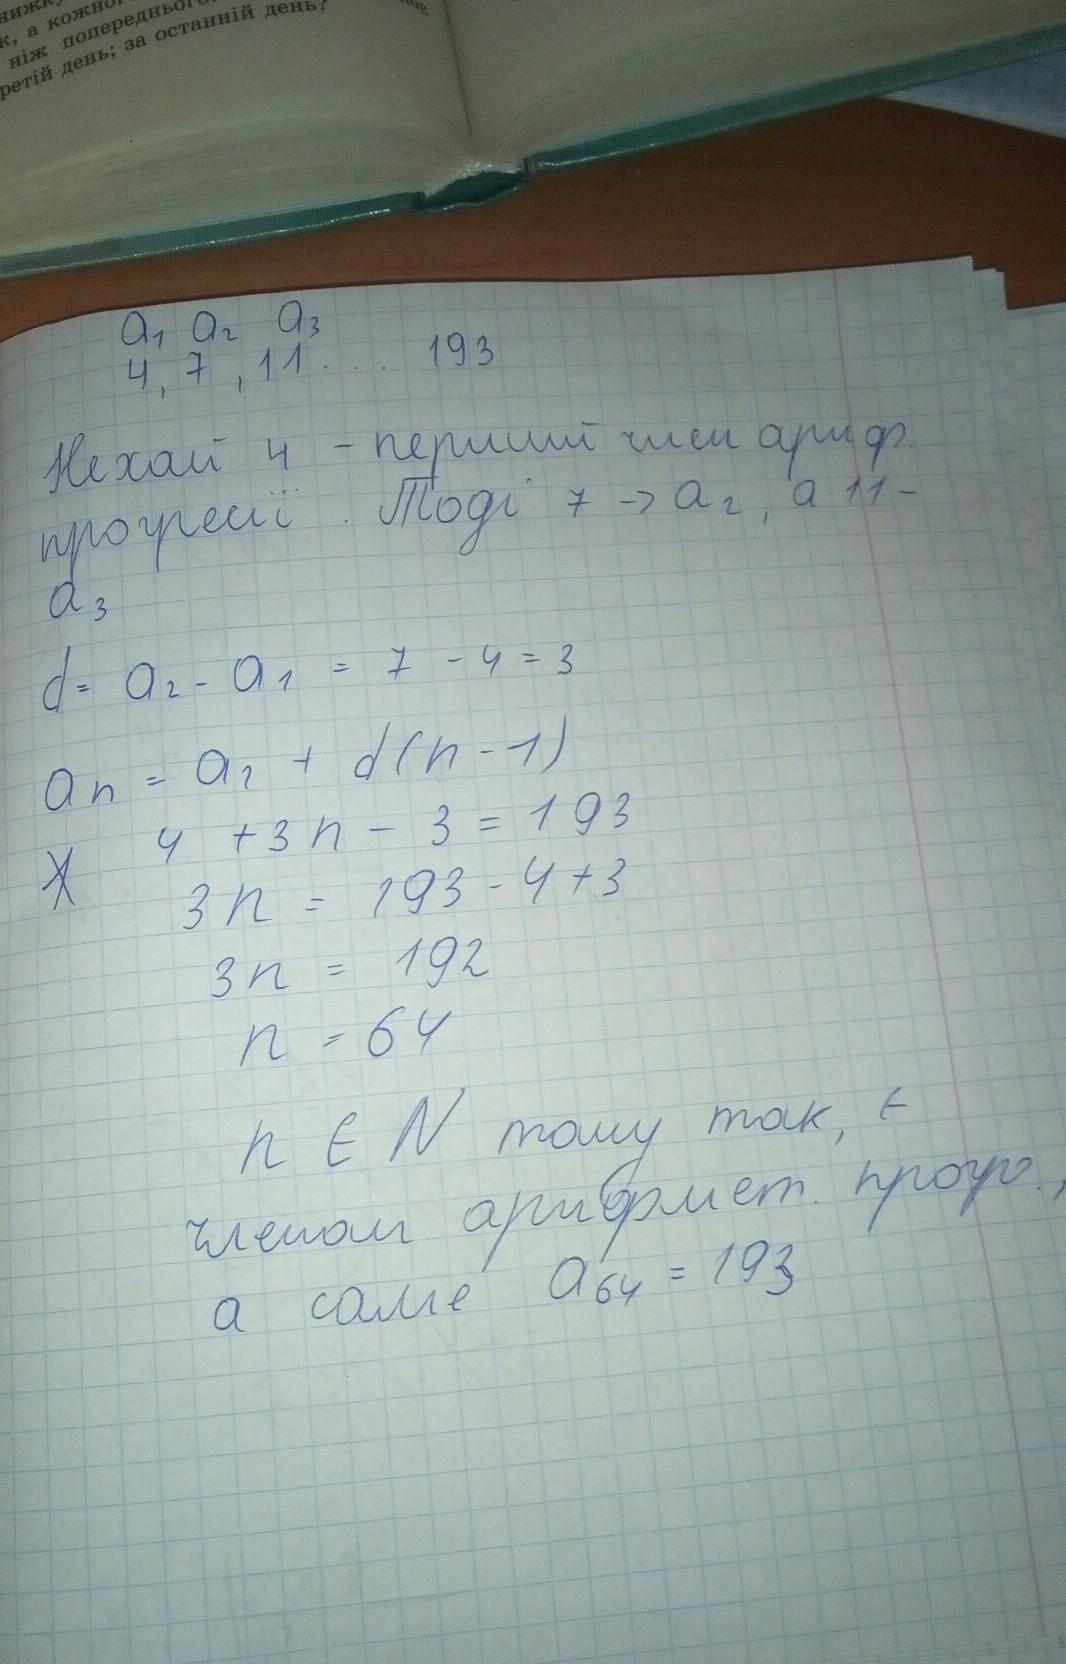 нижк
к, а кожно
ніж попереднього
ретій день; за останній день?
a1 a2 a3
4, 7, 11... 193
Нехай 4 - перший член ариф.
прогресії. Тоді 7 -> a2, а 11 -
a3
d = a2 - a1 = 7 - 4 = 3
an = a1 + d(n - 1)
4 + 3n - 3 = 193
3n = 193 - 4 + 3
3n = 192
n = 64
n ∈ N тому так, є
членом арифмет. прогр.,
а саме a64 = 193